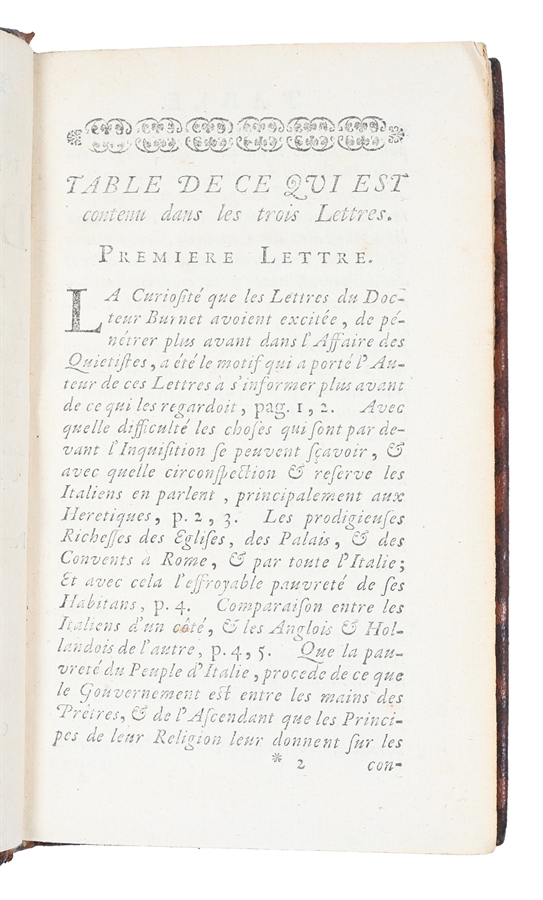 TABLE DE CE QVI EST
contenu dans les trois Lettres.
PREMIERE LETTRE.
LA Curiosité que les Lettres du Doc-
teur Burnet avoient excitée, de pé-
nétrer plus avant dans l'Affaire des
Quietistes, a été le motif qui a porté l'Au-
teur de ces Lettres à s'informer plus avant
de ce qui les regardoit, pag. 1, 2. Avec
quelle difficulté les choses qui sont par de-
vant l'Inquisition se peuvent sçavoir, &
avec quelle circonspection & reserve les
Italiens en parlent, principalement aux
Heretiques, p. 2, 3. Les prodigieuses
Richesses des Eglises, des Palais, & des
Convents à Rome, & par toute l'Italie;
Et avec cela l'effroyable pauvreté de ses
Habitans, p. 4. Comparaison entre les
Italiens d'un côté, & les Anglois & Hol-
landois de l'autre, p. 4, 5. Que la pau-
vreté du Peuple d'Italie, procede de ce que
le Gouvernement est entre les mains des
Prêtres, & de l'Ascendant que les Princi-
pes de leur Religion leur donnent sur les
* 2 con-